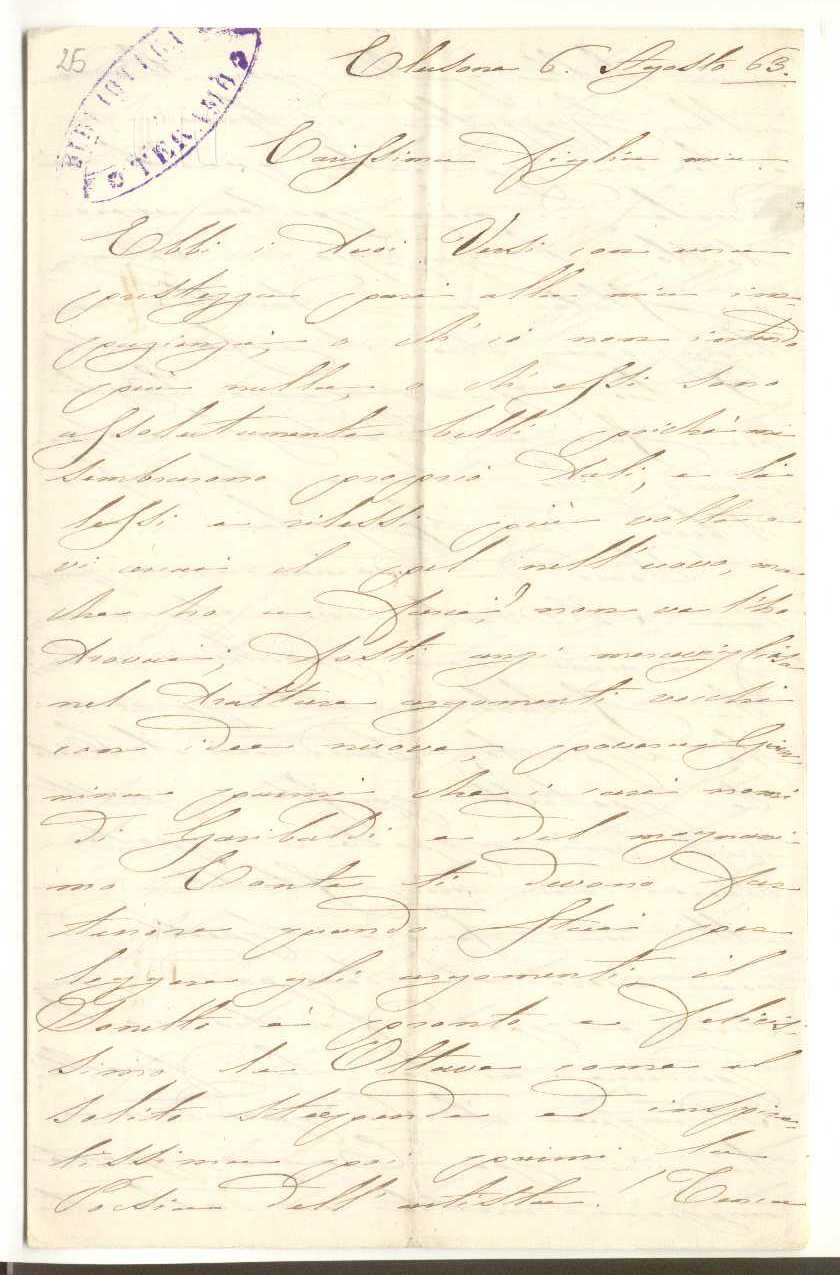 25
BIBLIOTECA
TERAMO
Clusone 6. Agosto 63.
Carissima Figlia mia
Ebbi i tuoi Versi con una
prestezza pari alla mia im-
pazienza, o ch'io non intendo
più nulla, o ch'essi sono
assolutamente belli poichè mi
sembrarono proprio tali, e li
lessi e rilessi più volte e
vi cercai il pel nell'uovo, ma
che ho a farci? non ve l'ho
trovai; fosti anzi meravigliosa
nel trattare argomenti vecchi
con idee nuove, povera Gian-
nina parmi che i cari nomi
di Garibaldi e del magnani-
mo Conte ti devono far
tenere quando stai per
leggere gli argomenti il
Sonetto è pronto e felicis-
simo le Ottave come al
solito stupende ed inspira-
tissima poi parmi la
Poesia dell'artista.